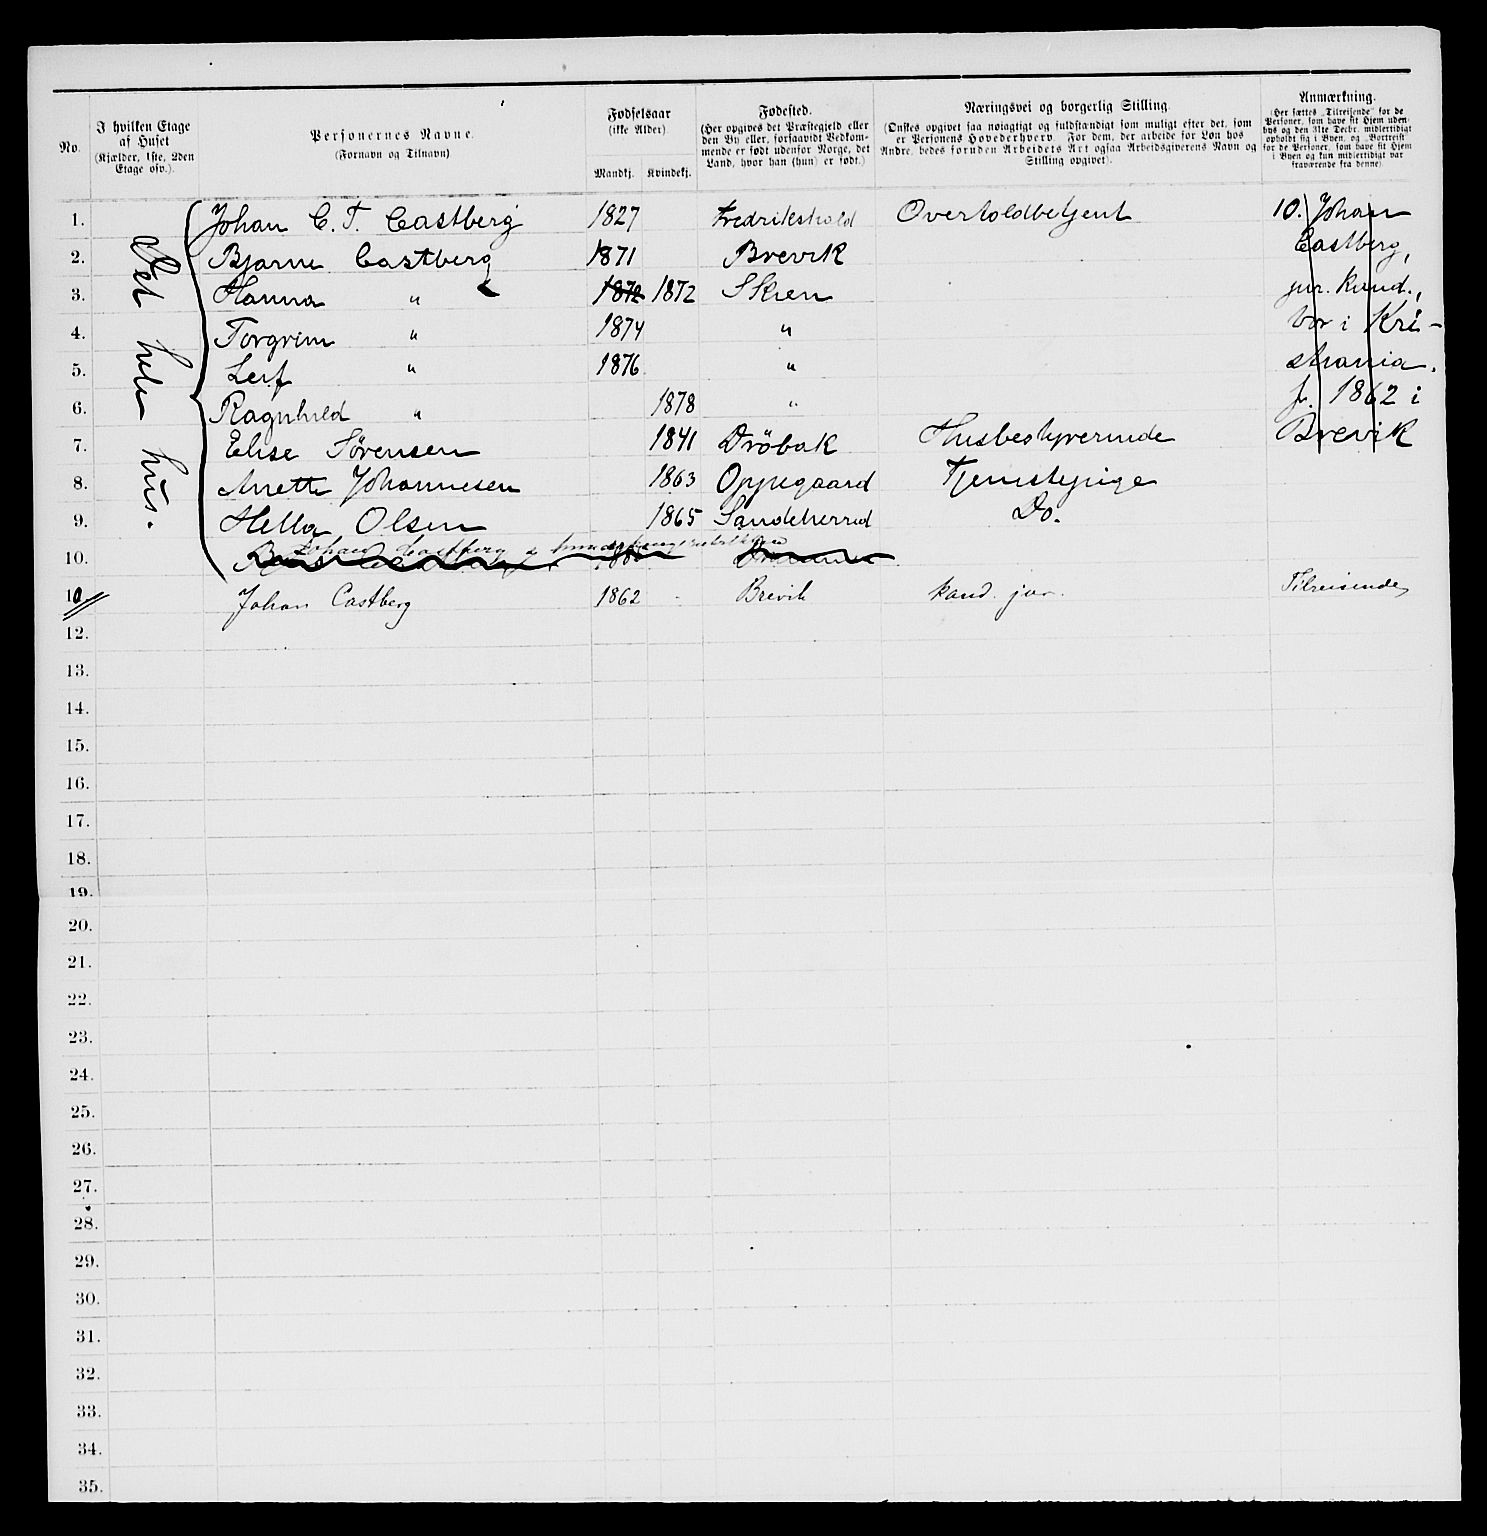 No.
I hvilken Etage
af Huset
(Kjælder, 1ste, 2den
Etage osv.).
Personernes Navne.
(Fornavn og Tilnavn)
Fødselsaar
(ikke Alder)
Mandkj. Kvindekj.
Fødested.
(Her opgives det Præstegjeld eller
den By eller, forsaavidt Vedkom-
mende er født udenfor Norge, det
Land, hvor han (hun) er født.)
Næringsvei og borgerlig Stilling.
(Ønskes opgivet saa nøiagtigt og fuldstændigt som muligt efter det, som
er Personens Hovederhverv. For dem, der arbeide for Løn hos
Andre, bedes foruden Arbeidets Art ogsaa Arbeidsgiverens Navn og
Stilling opgivet).
Anmærkning.
(Her sættes „Tilreisende“ for de
Personer, som have sit Hjem uden-
bys og den 31te Decbr. midlertidigt
opholdt sig i Byen, og „Bortreist“
for de Personer, som have sit Hjem
i Byen og kun midlertidigt var
fraværende fra denne).
Det hele hus.
1. Johan C. T. Castberg 1827 Fredrikshald Overtoldbetjent
2. Bjarne Castberg 1871 Brevik
3. Hanna " 1872 1872 Skien
4. Torgrim " 1874 "
5. Leif " 1876 "
6. Ragnhild " 1878 "
7. Elise Sørensen 1841 Drøbak Husbestyrerinde
8. Anette Johannesen 1863 Oppegaard Tjenestepige
9. Hella Olsen 1865 Sandeherred Do.
10. Johan Castberg
10. Johan
Castberg,
jur. kand.,
bor i Kri-
stiania.
f. 1862 i
Brevik
10 Johan Castberg 1862 Brevik kand. jur. Tilreisende
12.
13.
14.
15.
16.
17.
18.
19.
20.
21.
22.
23.
24.
25.
26.
27.
28.
29.
30.
31.
32.
33.
34.
35.